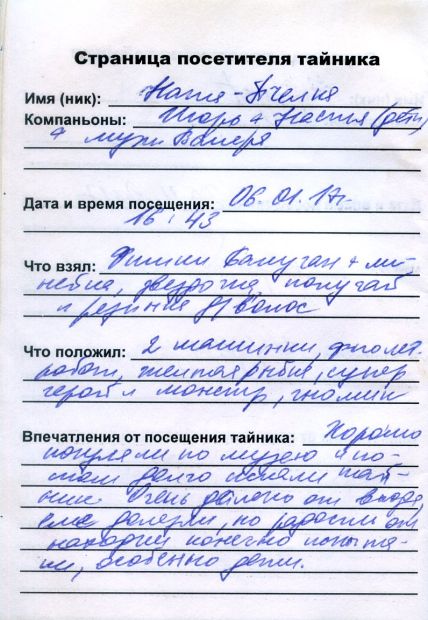 Страница посетителя тайника
Имя (ник): Натя-Пчелка
Компаньоны: Игорь и Настя (дети)
и муж Валера
Дата и время посещения: 06.01.17г.
16:43
Что взял: Фишки
попугай
и резинка д/волос
Что положил: 2 машинки,
желтая рыбка, супер
герой и монстр, гномик
Впечатления от посещения тайника: Хорошо
погуляли по музею и по-
том долго искали тай-
ник. Очень далеко от входа,
еле дошли, но радости от
находки конечно
особенно дети.